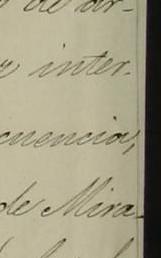 de ar-
inter-
cuencia,
de Mira-